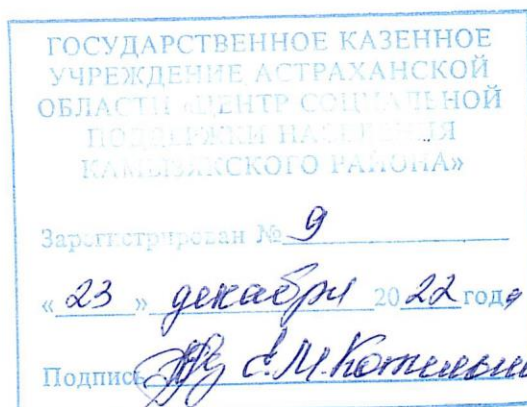 ГОСУДАРСТВЕННОЕ КАЗЕННОЕ
УЧРЕЖДЕНИЕ АСТРАХАНСКОЙ
ОБЛАСТИ «ЦЕНТР СОЦИАЛЬНОЙ
ПОДДЕРЖКИ НАСЕЛЕНИЯ
КАМЫЗЯКСКОГО РАЙОНА»
Зарегистрирован № 9
« 23 » декабря 2022 года
Подпись